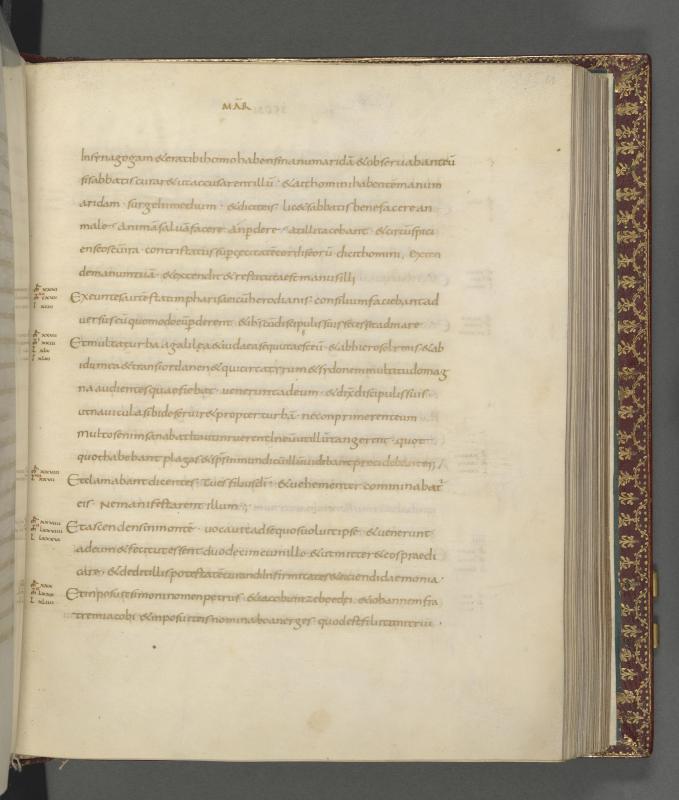 MAR̄
In synagogam & erat ibi homo habens manum aridā & observabant eū
si sabbatis curar& ut accusarent illū · & ait homini habentē manum
aridam · surge in medium · & dicit eis · lic& sabbatis bene facere an
male · animā salvā facere · an p̱dere · at illi tacebant · & circūspici
ens eos cū ira · contristatus sup̱ cecitatē cordis eorū dicit homini, Exten
de manum tuā · & extendit & restituta est manus illi
Exeuntes autē statim pharisaei cū herodianis · consilium faciebant ad
versus eū quomodo eū p̱derent · & ih̄s cū discipulis suis secessit ad mare
Et multa turba a galilęa & iudaea secuta est eū · & ab hierosolymis · & ab
idumea & trans iordanen & qui circa tyrum & sydonem multitudo mag
na audientes quae faciebat · venerunt ad eum · & dix̄ discipulis suis ·
ut navicula sibi deservir& propter turbā · ne conprimerent eum
multos enim sanabat ita ut inruerent in eū ut illū tangerent · quot
quot habebant plagas & sp̄s inmundi cū illū videbant procidebant ei,
Et clamabant dicentes · Tu es filius dī · & vehementer comminabat̄
eis · Ne manifestarent illum ·,
Et ascendens in montē · vocavit ad se quos voluit ipse · & venerunt
ad eum & fecit ut essent duodecim cum illo · & ut mitter& eos praedi
care · & dedit illis potestatē curandi infirmitates & eiciendi daemonia ·
Et inposuit simoni nomen petrus · & iacobum zebędęi · & iohannem fra
trem iacobi · & inposuit eis nomina boanerges · quod est filii tonitrui ·